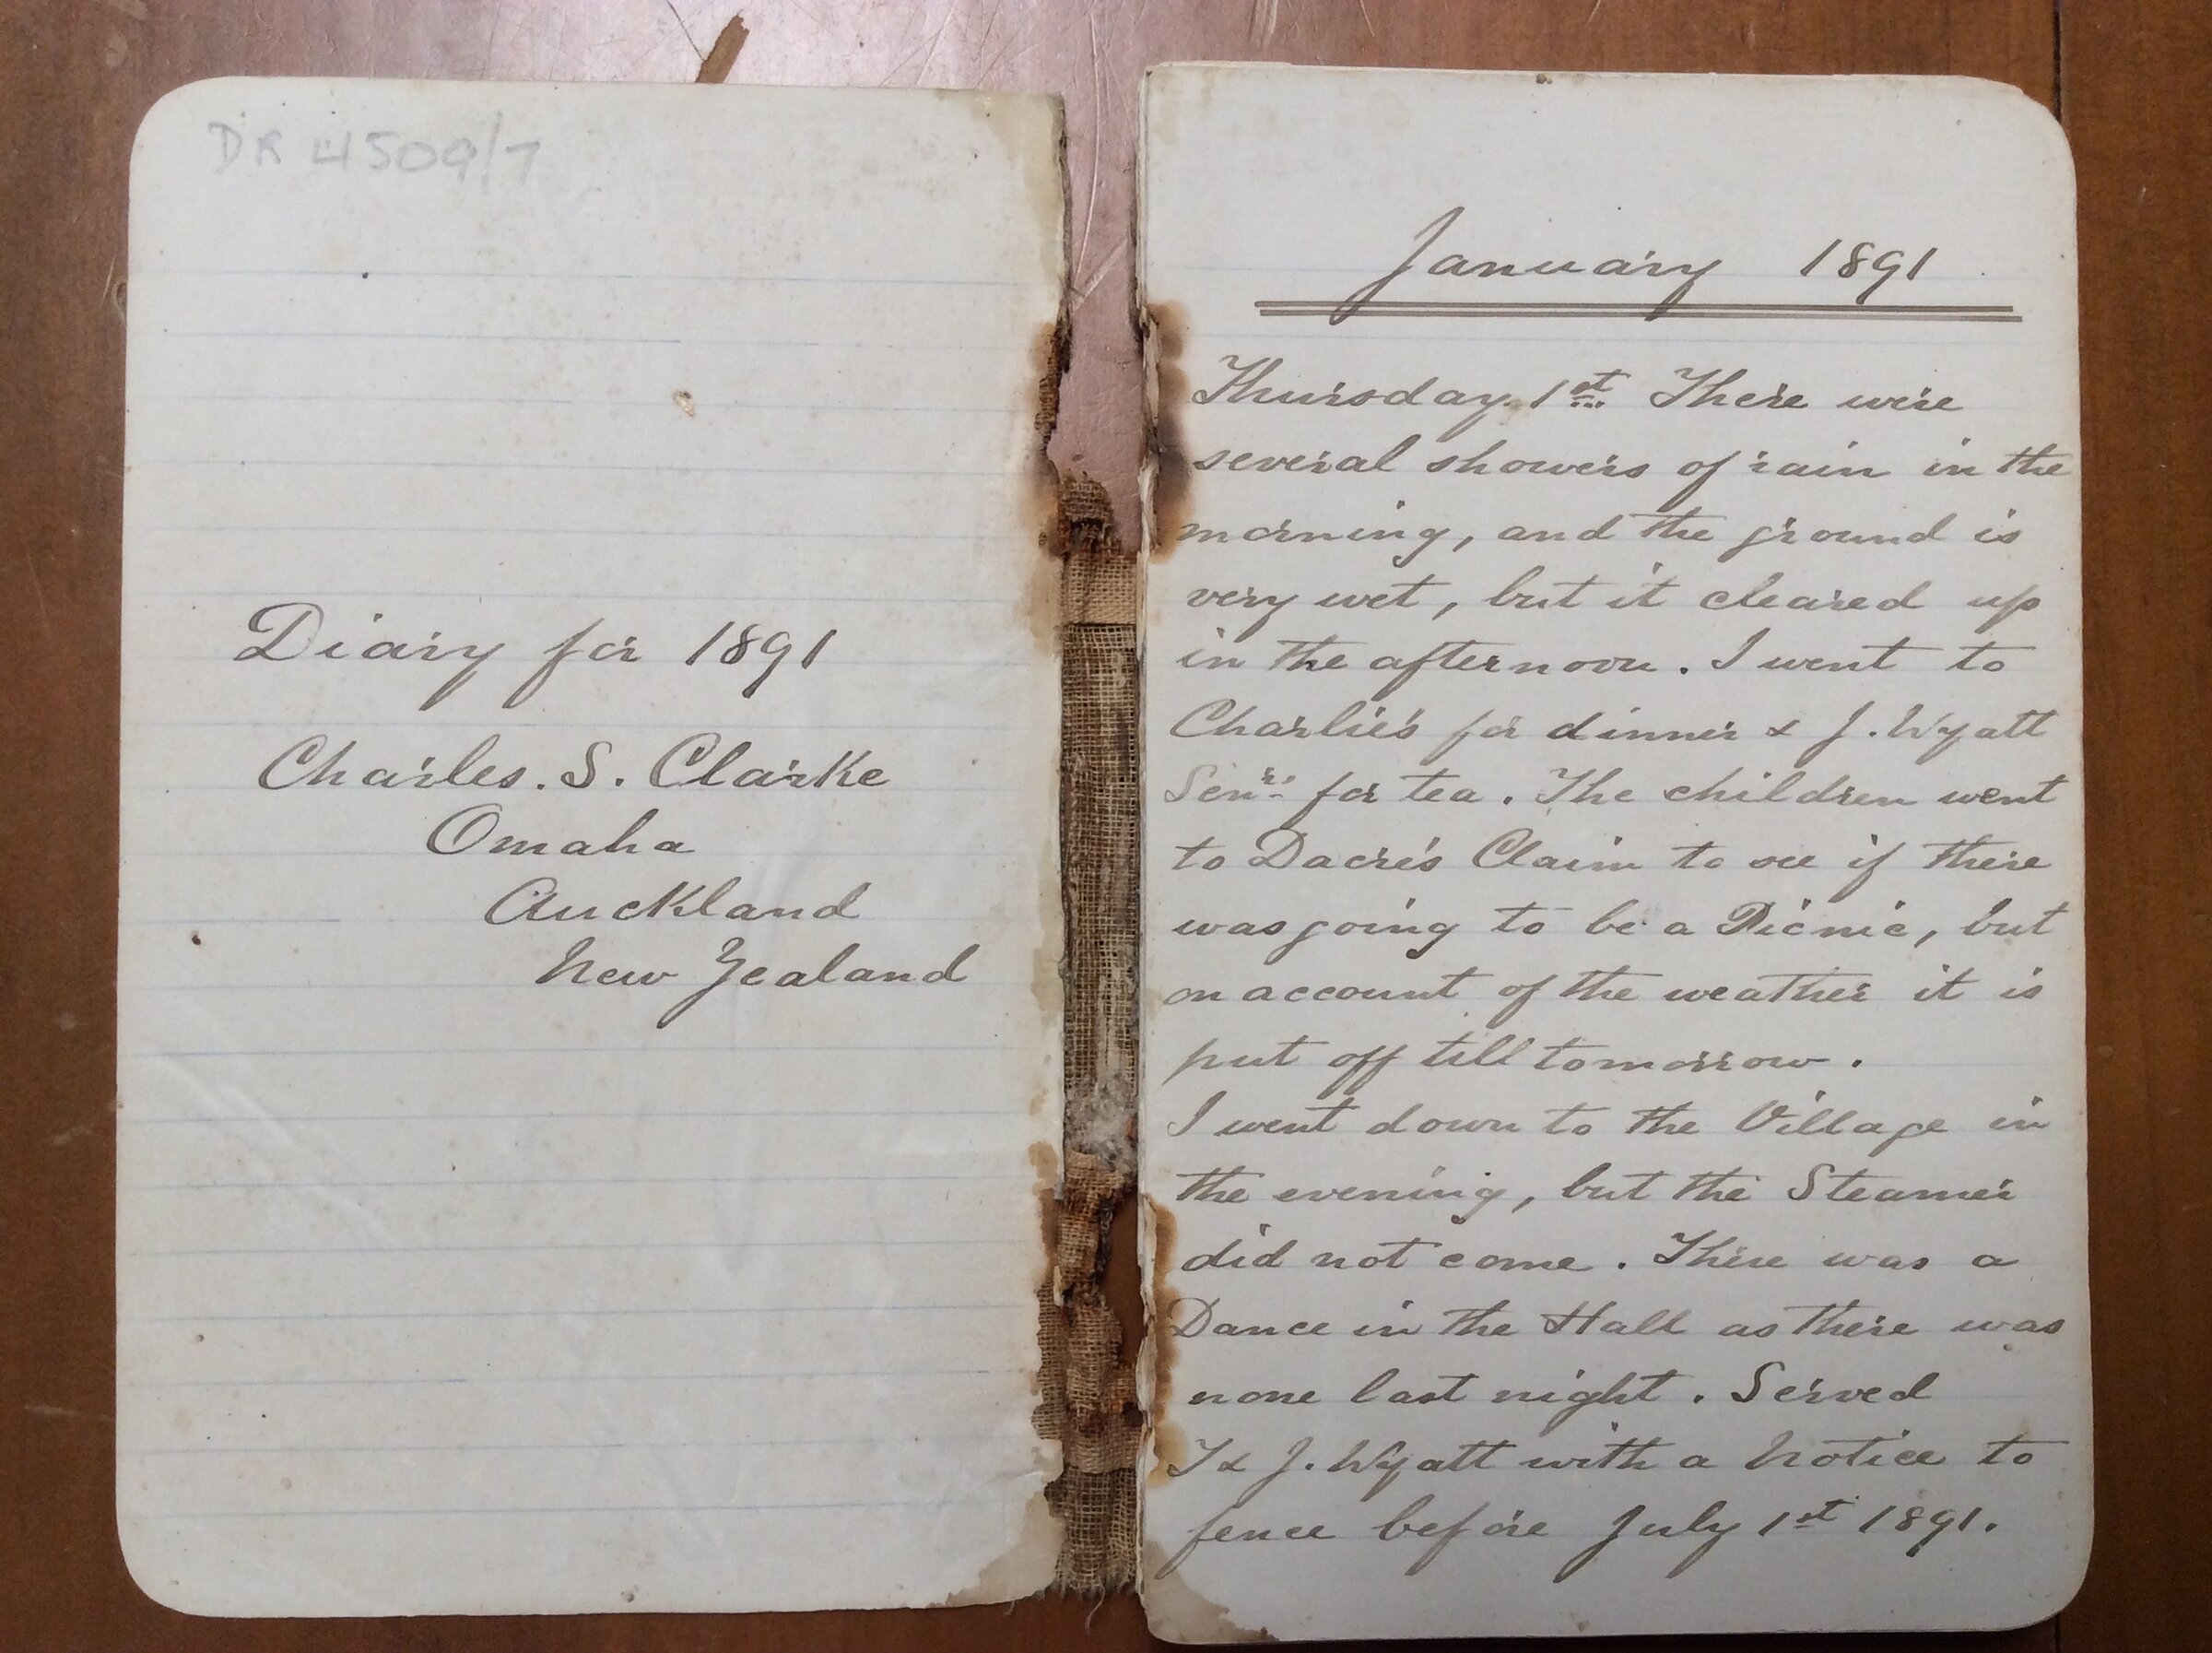 DR 4509/7
Diary for 1891
Charles. S. Clarke
Omaha
Auckland
New Zealand
January 1891
Thursday. 1st There were
several showers of rain in the
morning, and the ground is
very wet, but it cleared up
in the afternoon. I went to
Charlie's for dinner & J. Wyatt
Senr. for tea. The children went
to Dacre's Claim to see if there
was going to be a Picnic, but
on account of the weather it is
put off till tomorrow.
I went down to the Village in
the evening, but the Steamer
did not come. There was a
Dance in the Hall as there was
none last night. Served
T & J. Wyatt with a Notice to
fence before July 1st 1891.